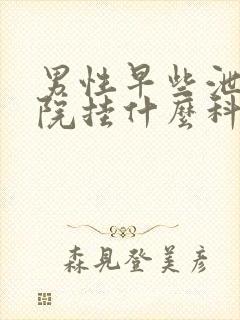 男性早些泄
院挂什麼科
森見登美彦